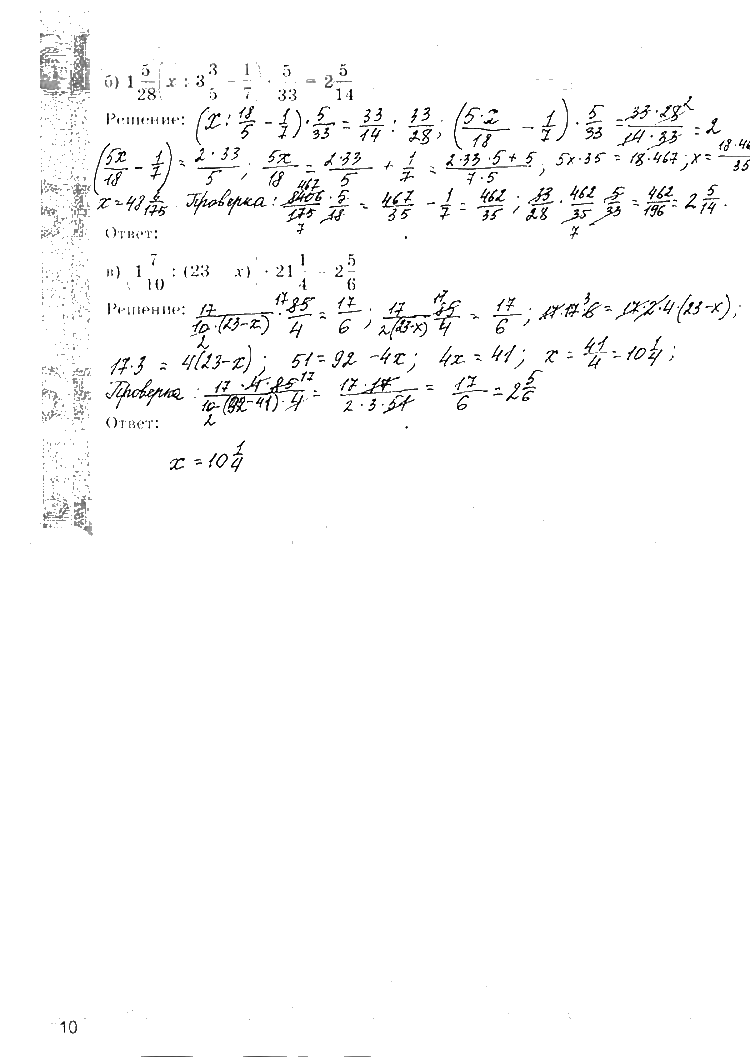 б) 1 5/28 (x : 3 3/5 − 1/7) · 5/33 = 2 5/14
Решение: (x : 18/5 − 1/7) · 5/33 = 33/14 : 33/28; (5·x/18 − 1/7) · 5/33 = 33·28²/14·33 = 2
(5x/18 − 1/7) = 2·33/5; 5x/18 = 2·33/5 + 1/7 = 2·33·5+5/7·5; 5x·35 = 18·467; x = 18·46/35
x = 48 6/175. Проверка: 467 8406/175 7 · 5/18 = 467/35 − 1/7 = 462/35; 33/28 · 462/35 7 · 5/33 = 462/196 = 2 5/14.
Ответ: .
в) 1 7/10 : (23 x) · 21 1/4 = 2 5/6
Решение: 17/10·(23−x) 2 · 17 85/4 = 17/6; 17/2(23−x) 17 85/4 = 17/6; 17·17³·6 = 17·2·4(23−x);
17·3 = 4(23−x); 51 = 92 − 4x; 4x = 41; x = 41/4 = 10 1/4;
Проверка: 17·4·85 17/10·(92−41)·4 2 = 17·17/2·3·51 = 17/6 = 2 5/6
Ответ: .
x = 10 1/4
10